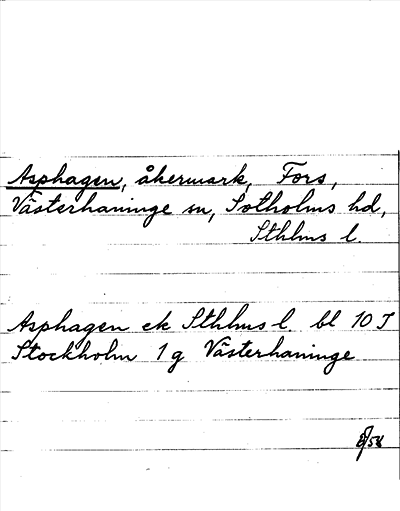 Asphagen, åkermark, Fors,
Västerhaninge sn, Sotholms hd,
Sthlms l.
Asphagen ek Sthlms l. bl 10 J
Stockholm 1 g Västerhaninge